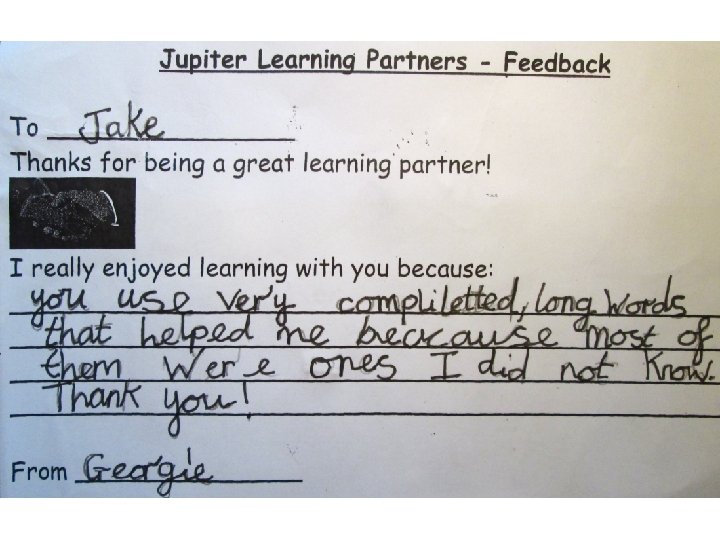 Jupiter Learning Partners - Feedback
To Jake
Thanks for being a great learning partner!
I really enjoyed learning with you because:
you use very compliletted, long words
that helped me beacause most of
them were ones I did not know.
Thank you!
From Georgie